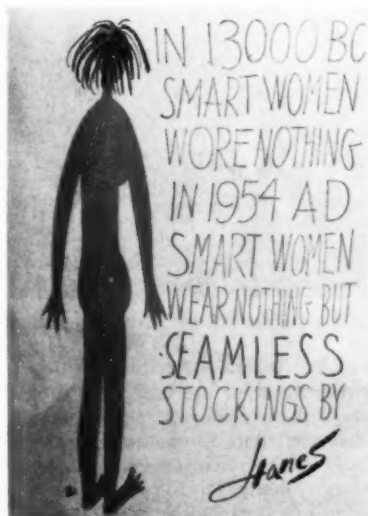 IN 13000 BC
SMART WOMEN
WORE NOTHING
IN 1954 A D
SMART WOMEN
WEAR NOTHING BUT
SEAMLESS
STOCKINGS BY
Hanes